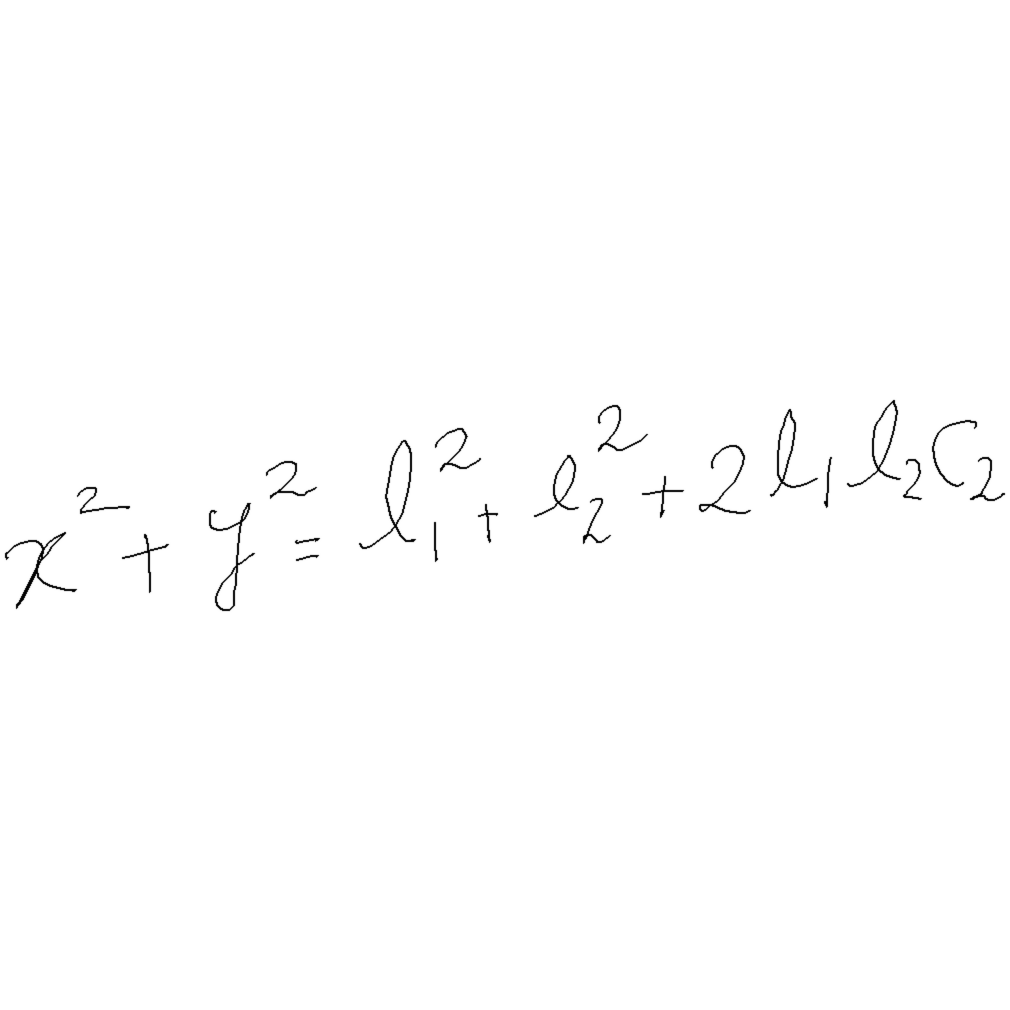 x² + y² = l₁² + l₂² + 2l₁l₂c₂